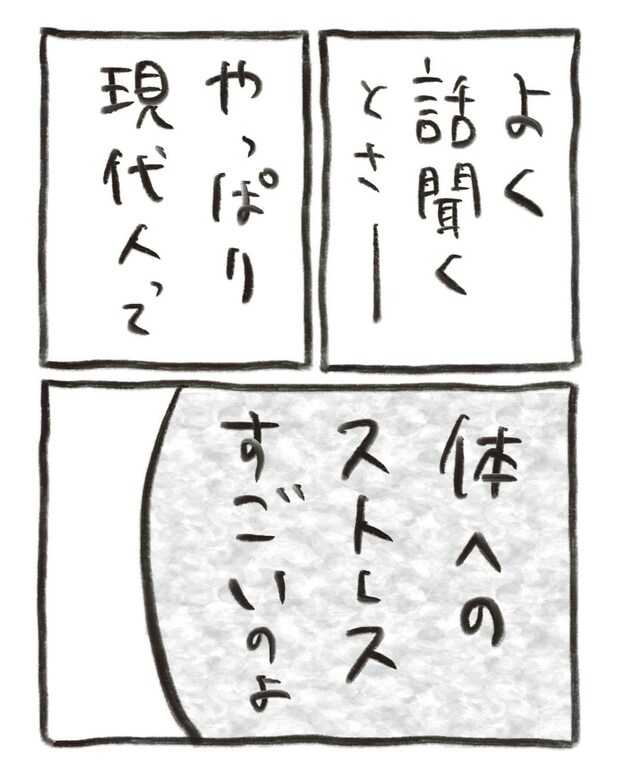 よく
話聞く
とさー
やっぱり
現代人って
体への
ストレス
すごいのよ